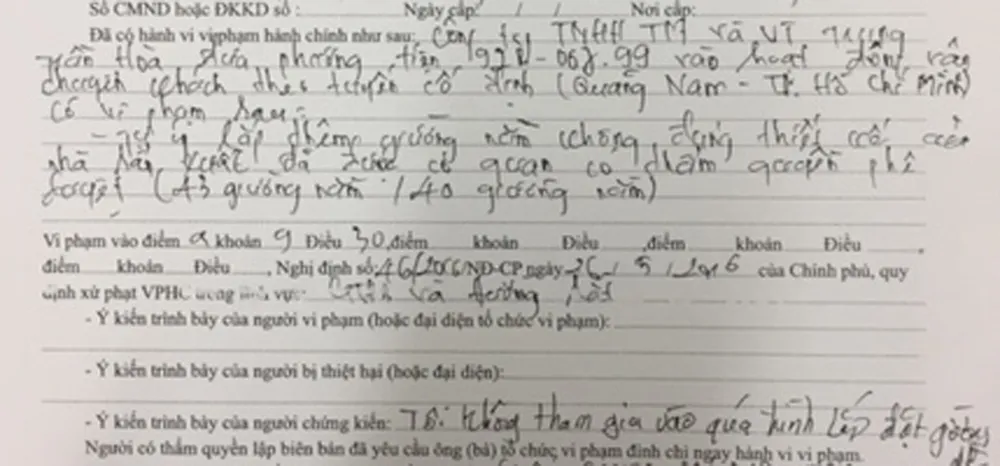 Số CMND hoặc ĐKKD số : Ngày cấp: / / Nơi cấp:
Đã có hành vi vi phạm hành chính như sau: Công ty TNHH TM và
Trần Hòa đưa phương tiện 97B-067.99 vào hoạt động vận
chuyển khách theo tuyến cố định (Quảng Nam - Tp. Hồ Chí Minh)
có vi phạm sau:
- Tự ý lắp thêm giường nằm không đúng thiết kế của
nhà sản xuất đã được cơ quan có thẩm quyền phê
duyệt (43 giường nằm / 40 giường nằm)
Vi phạm vào điểm a khoản 9 Điều 30,điểm khoản Điều ,điểm khoản Điều ,
điểm khoản Điều , Nghị định số: 46/2016/NĐ-CP ngày 26 / 5 / 2016 của Chính phủ, quy
định xử phạt VPHC trong lĩnh vực:
- Ý kiến trình bày của người vi phạm (hoặc đại diện tổ chức vi phạm):
- Ý kiến trình bày của người bị thiệt hại (hoặc đại diện):
- Ý kiến trình bày của người chứng kiến: Tôi không tham gia vào quá trình lắp đặt
Người có thẩm quyền lập biên bản đã yêu cầu ông (bà) tổ chức vi phạm đình chỉ ngay hành vi vi phạm.